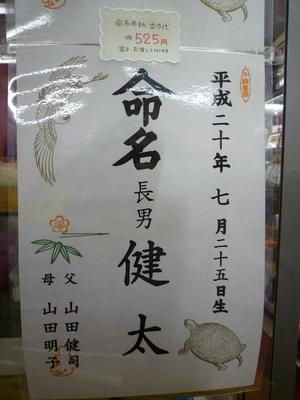 命名用紙 出力代
525円
翌日 お渡しとなります
平成二十年 七月二十五日生
命名 長男 健太
父 山田健司
母 山田明子